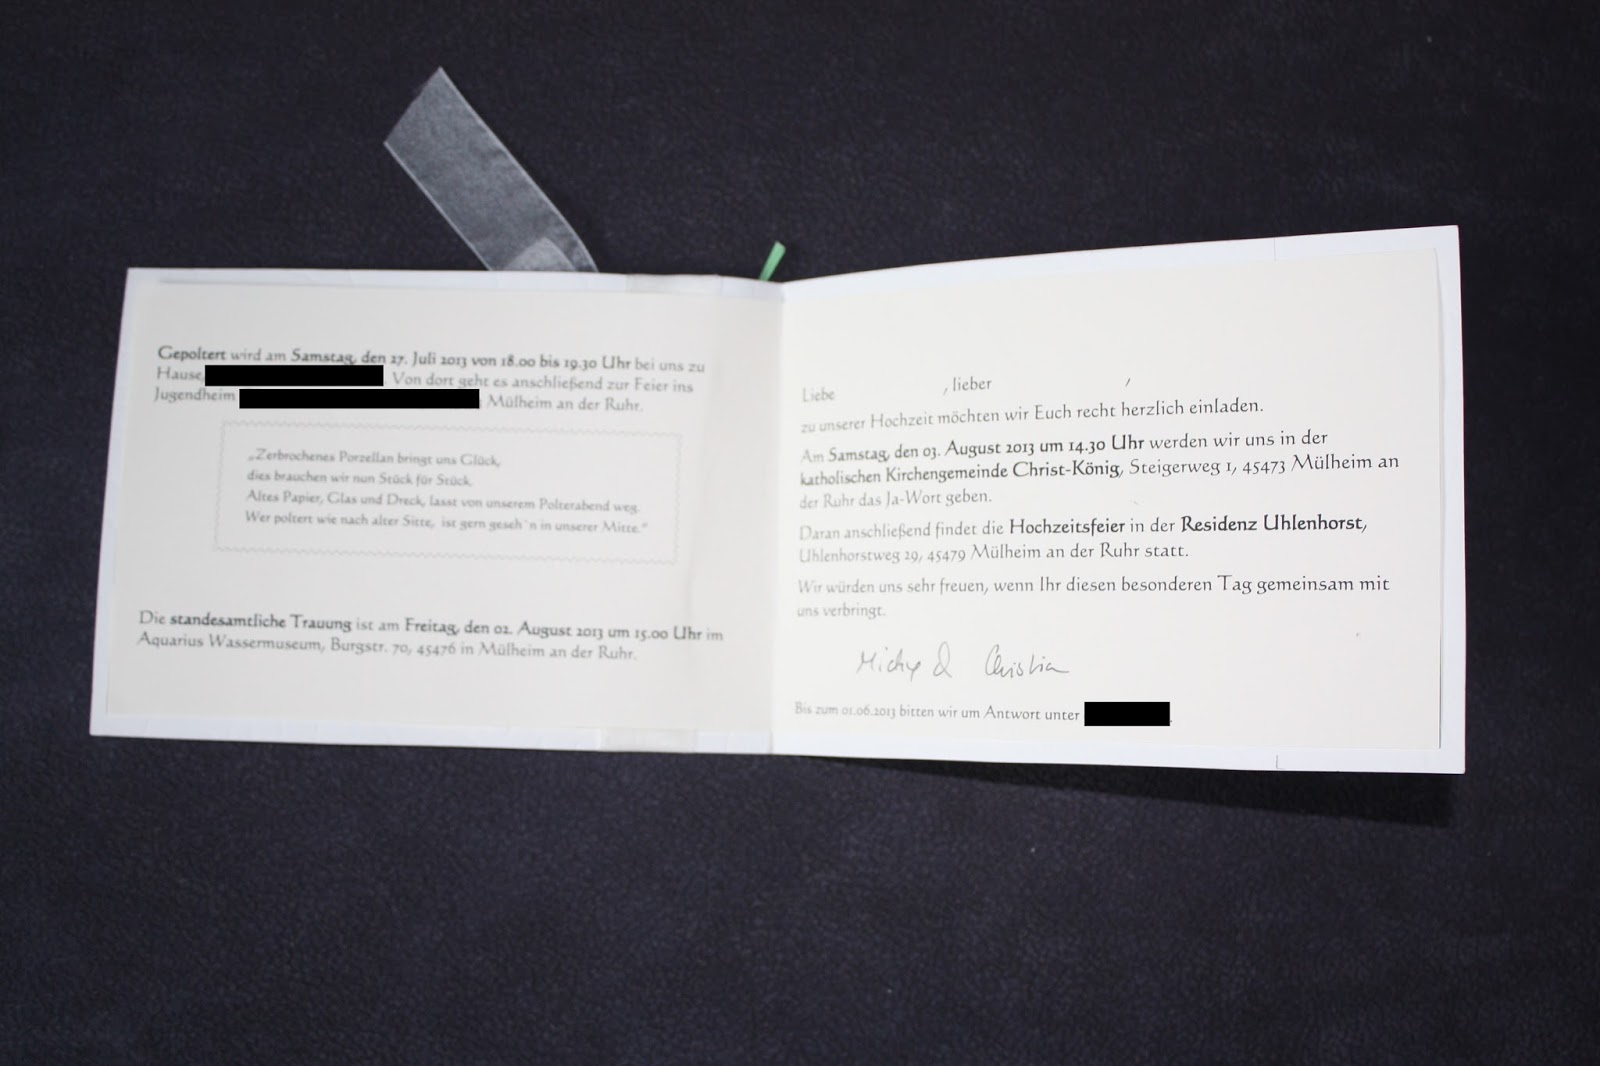 Gepoltert wird am Samstag, den 27. Juli 2013 von 18.00 bis 19.30 Uhr bei uns zu
Hause, . Von dort geht es anschließend zur Feier ins
Jugendheim , Mülheim an der Ruhr.
„Zerbrochenes Porzellan bringt uns Glück,
dies brauchen wir nun Stück für Stück.
Altes Papier, Glas und Dreck, lasst von unserem Polterabend weg.
Wer poltert wie nach alter Sitte, ist gern geseh`n in unserer Mitte.“
Die standesamtliche Trauung ist am Freitag, den 02. August 2013 um 15.00 Uhr im
Aquarius Wassermuseum, Burgstr. 70, 45476 in Mülheim an der Ruhr.
Liebe , lieber ,
zu unserer Hochzeit möchten wir Euch recht herzlich einladen.
Am Samstag, den 03. August 2013 um 14.30 Uhr werden wir uns in der
katholischen Kirchengemeinde Christ-König, Steigerweg 1, 45473 Mülheim an
der Ruhr das Ja-Wort geben.
Daran anschließend findet die Hochzeitsfeier in der Residenz Uhlenhorst,
Uhlenhorstweg 29, 45479 Mülheim an der Ruhr statt.
Wir würden uns sehr freuen, wenn Ihr diesen besonderen Tag gemeinsam mit
uns verbringt.
& Christian
Bis zum 01.06.2013 bitten wir um Antwort unter .